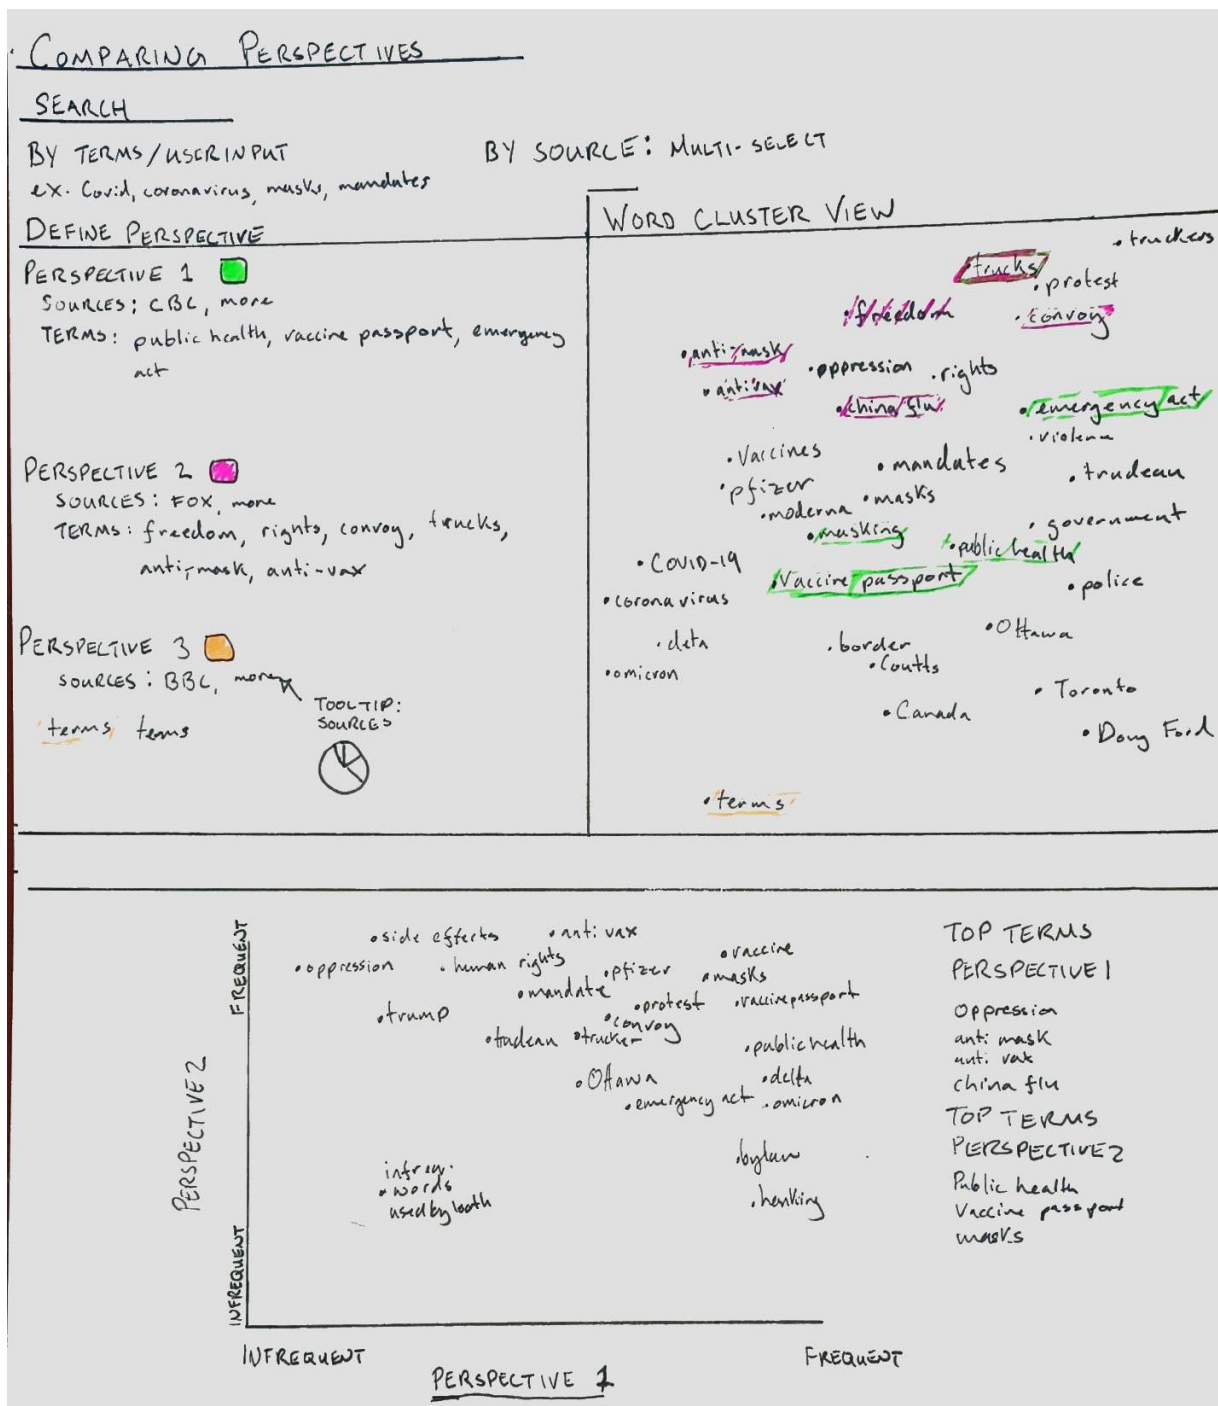 COMPARING PERSPECTIVES
SEARCH
BY TERMS/USERINPUT
ex. Covid, coronavirus, masks, mandates
BY SOURCE: MULTI-SELECT
DEFINE PERSPECTIVE
PERSPECTIVE 1
SOURCES: CBC, more
TERMS: public health, vaccine passport, emergency
act
PERSPECTIVE 2
SOURCES: FOX, more
TERMS: freedom, rights, convoy, trucks,
anti-mask, anti-vax
PERSPECTIVE 3
SOURCES: BBC, more
terms, terms
TOOLTIP:
SOURCES
WORD CLUSTER VIEW
truckers
trucks
protest
freedom
convoy
anti-mask
oppression
rights
antivax
china flu
emergency act
violence
Vaccines
mandates
trudeau
pfizer
masks
moderna
government
masking
public health
COVID-19
Vaccine passport
police
coronavirus
Ottawa
delta
border
Coutts
omicron
Toronto
Canada
Doug Ford
terms
FREQUENT
PERSPECTIVE 2
INFREQUENT
side effects
anti vax
vaccine
oppression
human rights
pfizer
masks
mandate
protest
vaccine passport
trump
convoy
trudeau
trucker
public health
Ottawa
delta
emergency act
omicron
bylaw
infreq.
words
used by both
honking
INFREQUENT
FREQUENT
PERSPECTIVE 1
TOP TERMS
PERSPECTIVE 1
Oppression
anti mask
anti vax
china flu
TOP TERMS
PERSPECTIVE 2
Public health
Vaccine passport
masks